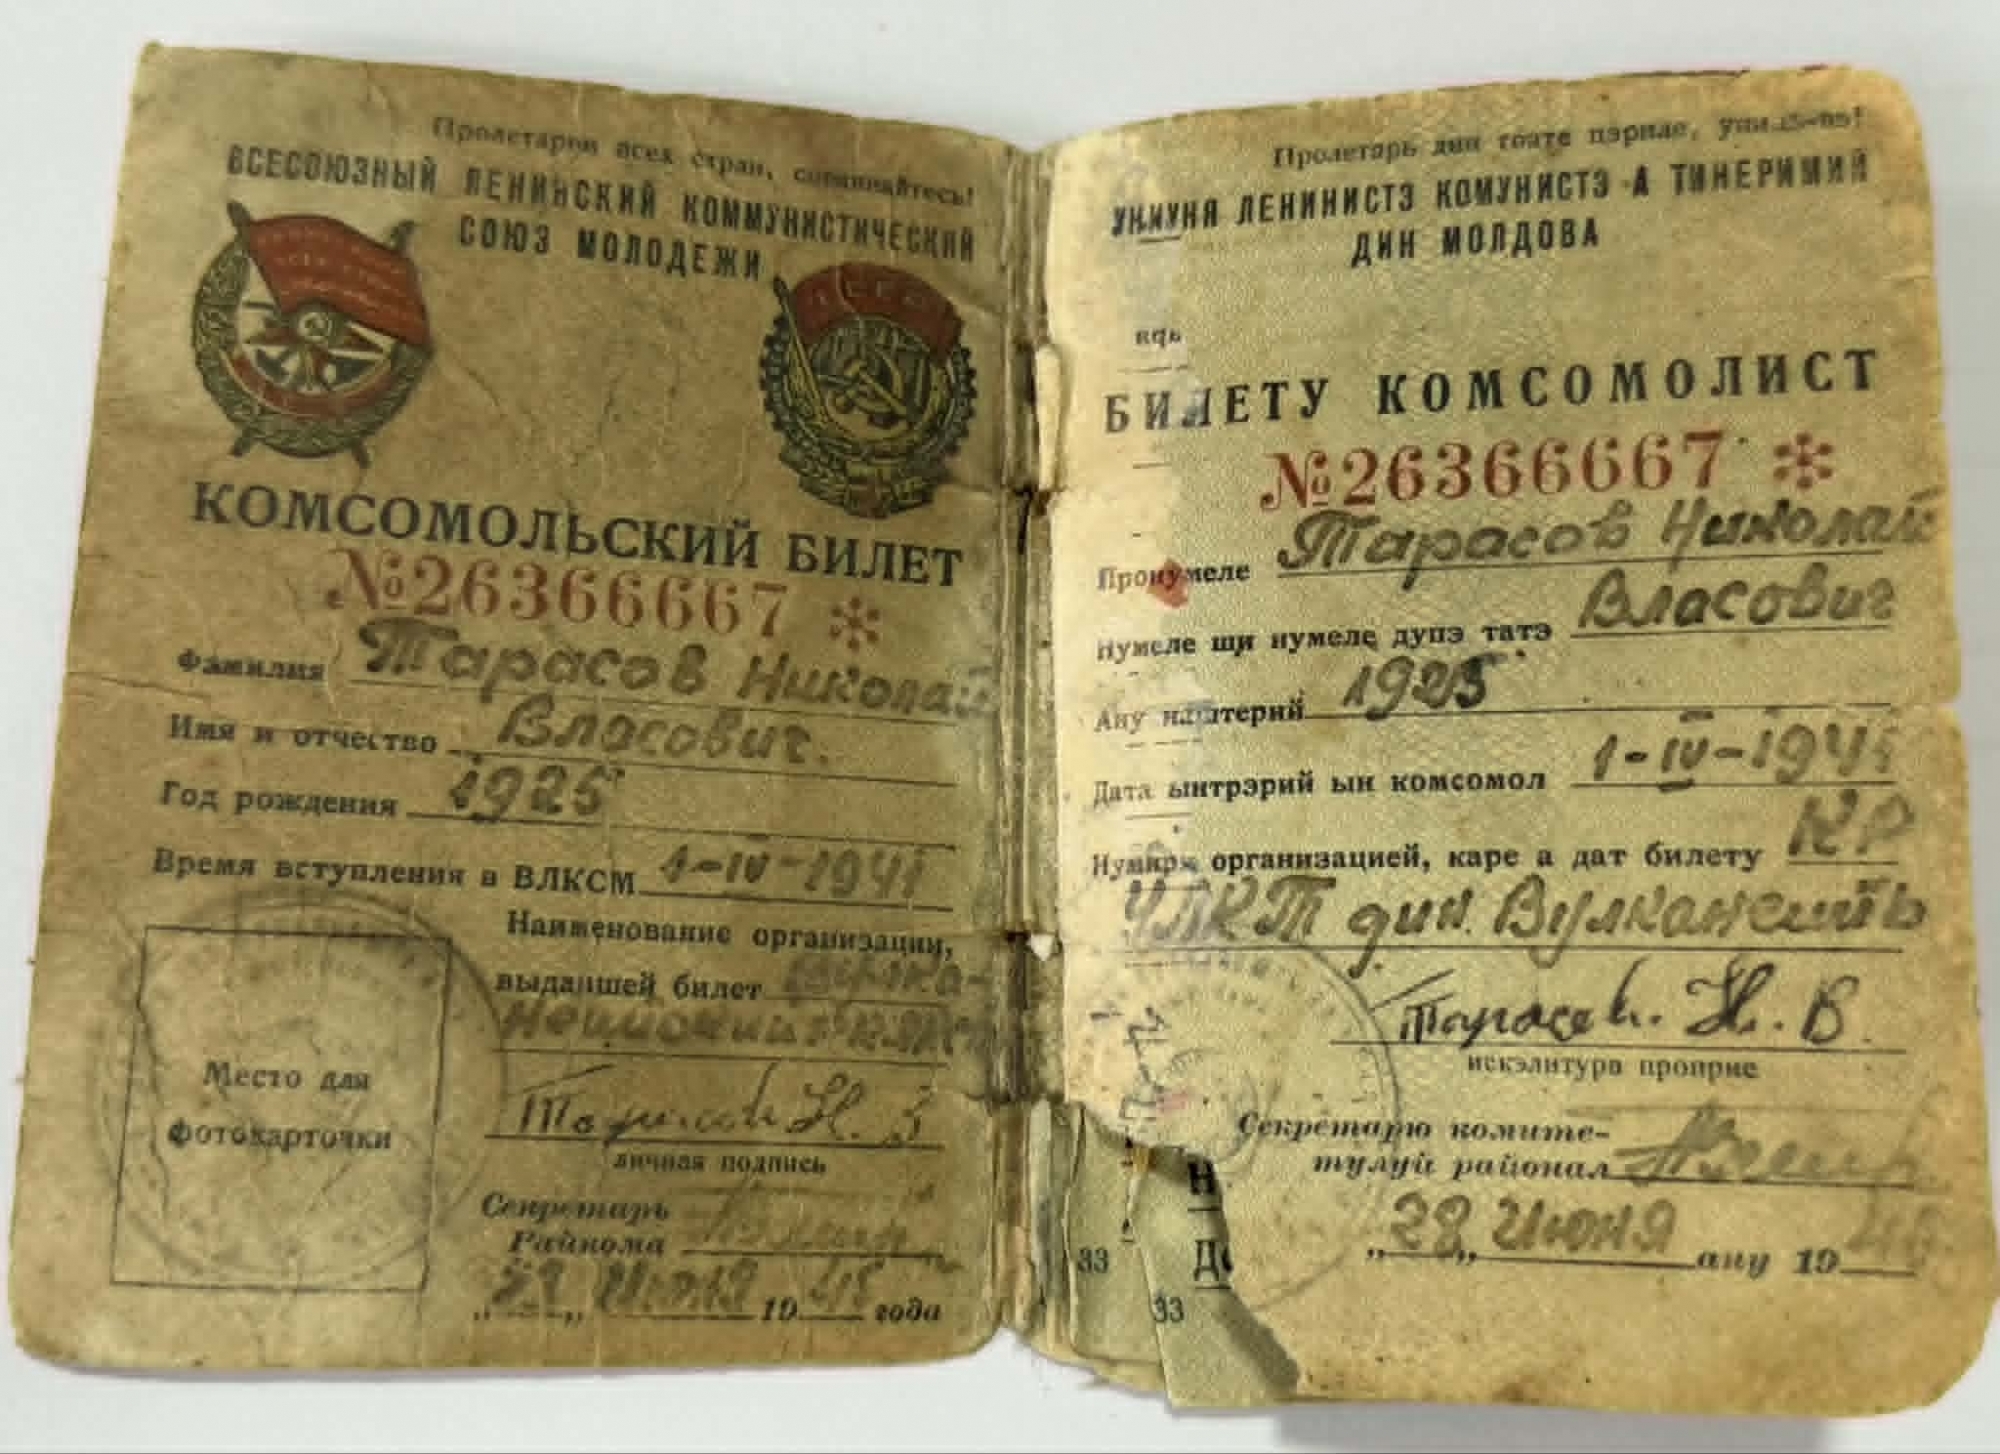 Пролетарии всех стран, соединяйтесь!
ВСЕСОЮЗНЫЙ ЛЕНИНСКИЙ КОММУНИСТИЧЕСКИЙ
СОЮЗ МОЛОДЕЖИ
КОМСОМОЛЬСКИЙ БИЛЕТ
№26366667 *
Фамилия Тарасов Николай
Имя и отчество Власович.
Год рождения 1925
Время вступления в ВЛКСМ 1-IV-1941
Наименование организации,
выдавшей билет
Место для
фотокарточки
Тарасов Н. В
личная подпись
Секретарь
Райкома
„28„ Июня 19 года
Пролетарь дин тоате цэриле,
УНИУНЯ ЛЕНИНИСТЭ КОМУНИСТЭ А ТИНЕРИМИЙ
ДИН МОЛДОВА
БИЛЕТУ КОМСОМОЛИСТ
№26366667 *
Пронумеле Тарасов Николай
Нумеле ши нумеле дупэ татэ Власович
Ану наштерий 1925
Дата ынтрэрий ын комсомол 1-IV-1941
Нумиря организацией, каре а дат билету КР
УЛКТ дин Вулканешть
Тарасов. Н. В.
искэлитура проприе
Секретарю комите-
тулуй районал
„28„ Июня ану 19
33
33